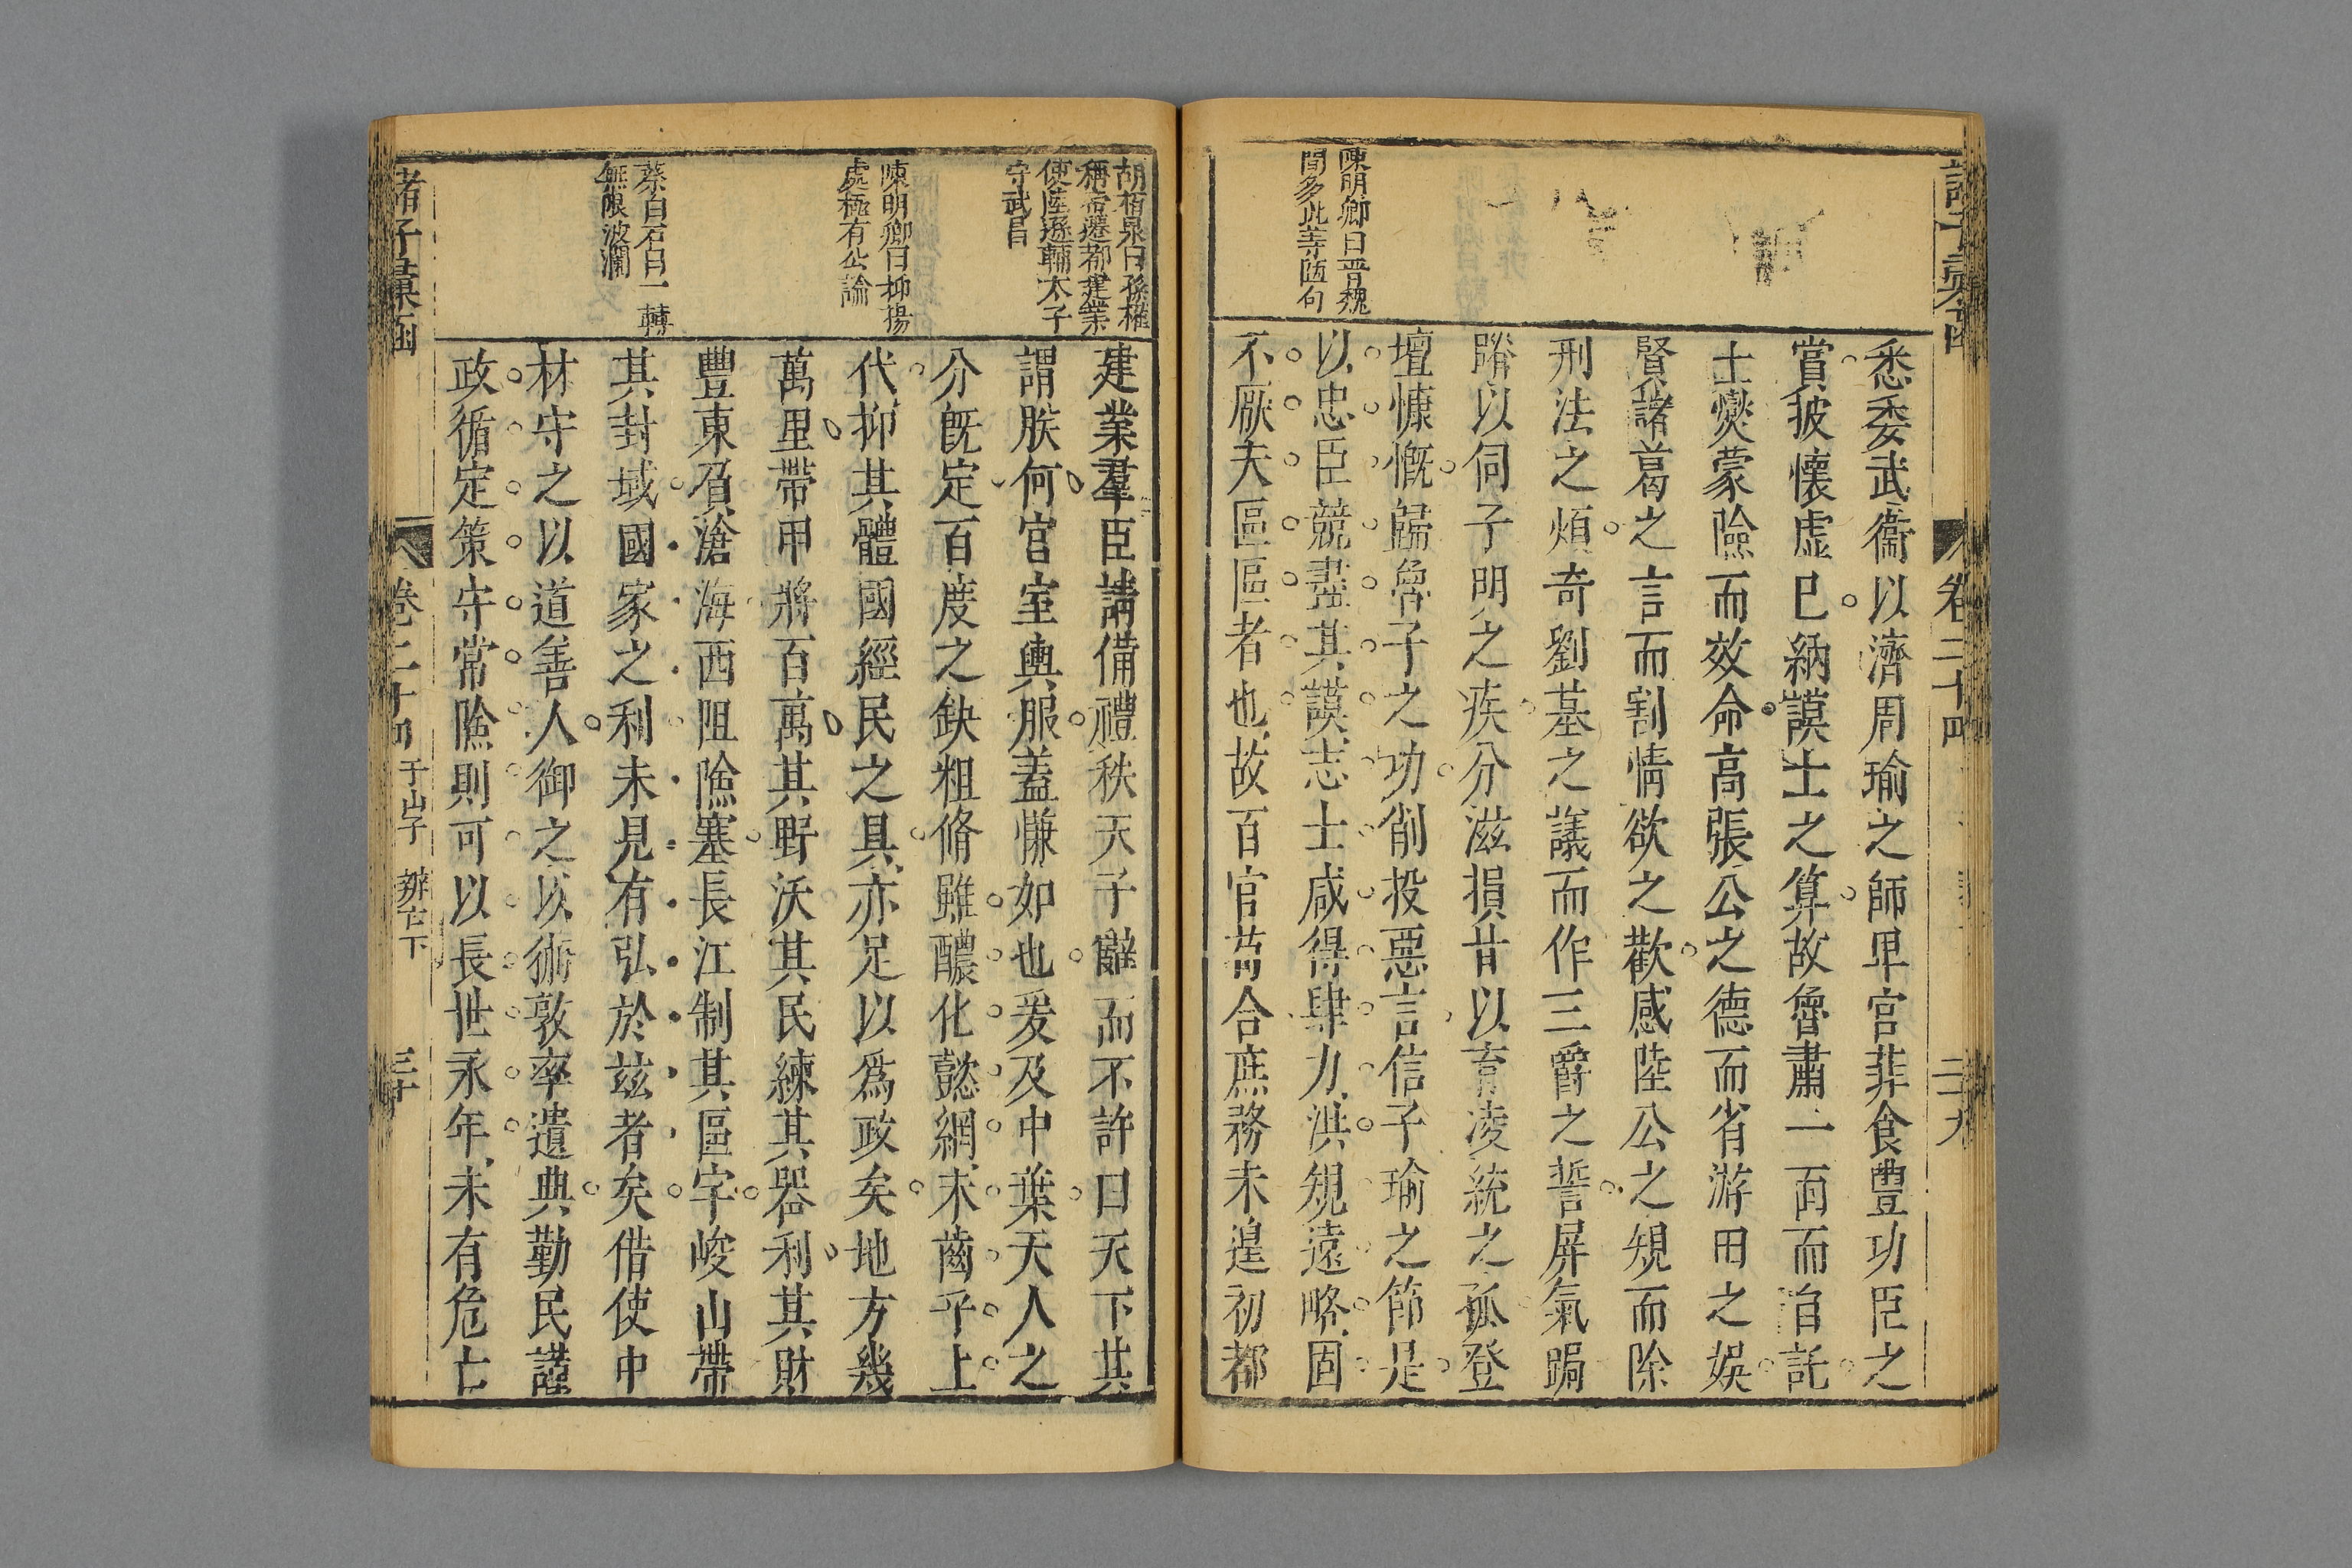 諸子彙函
卷二十四
二十九
陳明卿曰晋魏
間多此等陗句
悉委武衞以濟周瑜之師卑宮菲食豊功臣之
賞披懐虛巳納謨士之算故魯肅一靣而自託
士燮蒙險而效命高張公之德而省游田之娛
賢諸葛之言而割情欲之歡感陸公之規而除
刑法之煩奇劉基之議而作三爵之誓屏氣跼
蹐以伺子明之疾分滋損甘以育凌統之孤登
壇慷慨歸魯子之功削投惡言信子瑜之節是
以忠臣競盡其謨志士咸得肆力洪規遠略固
不厭夫區區者也故百官苟合庶務未遑初都
胡栢泉曰孫權
稱帝遷都建業
使陸遜輔太子
守武昌
陳明卿曰抑揚
處極有公論
蔡白石曰一轉
無限波瀾
建業羣臣請備禮秩天子辭而不許曰天下其
謂朕何宮室輿服蓋慊如也爰及中葉天人之
分旣定百度之缺粗脩雖醲化懿網未齒乎上
代抑其體國經民之具亦足以爲政矣地方幾
萬里帶甲將百萬其野沃其民練其器利其財
豐東負滄海西阻險塞長江制其區宇峻山帶
其封域國家之利未見有弘於兹者矣借使中
材守之以道善人御之以術敦率遺典勤民謹
政循定策守常險則可以長世永年未有危亡
諸子彙函
卷二十四
于山子
辨亡下
三十